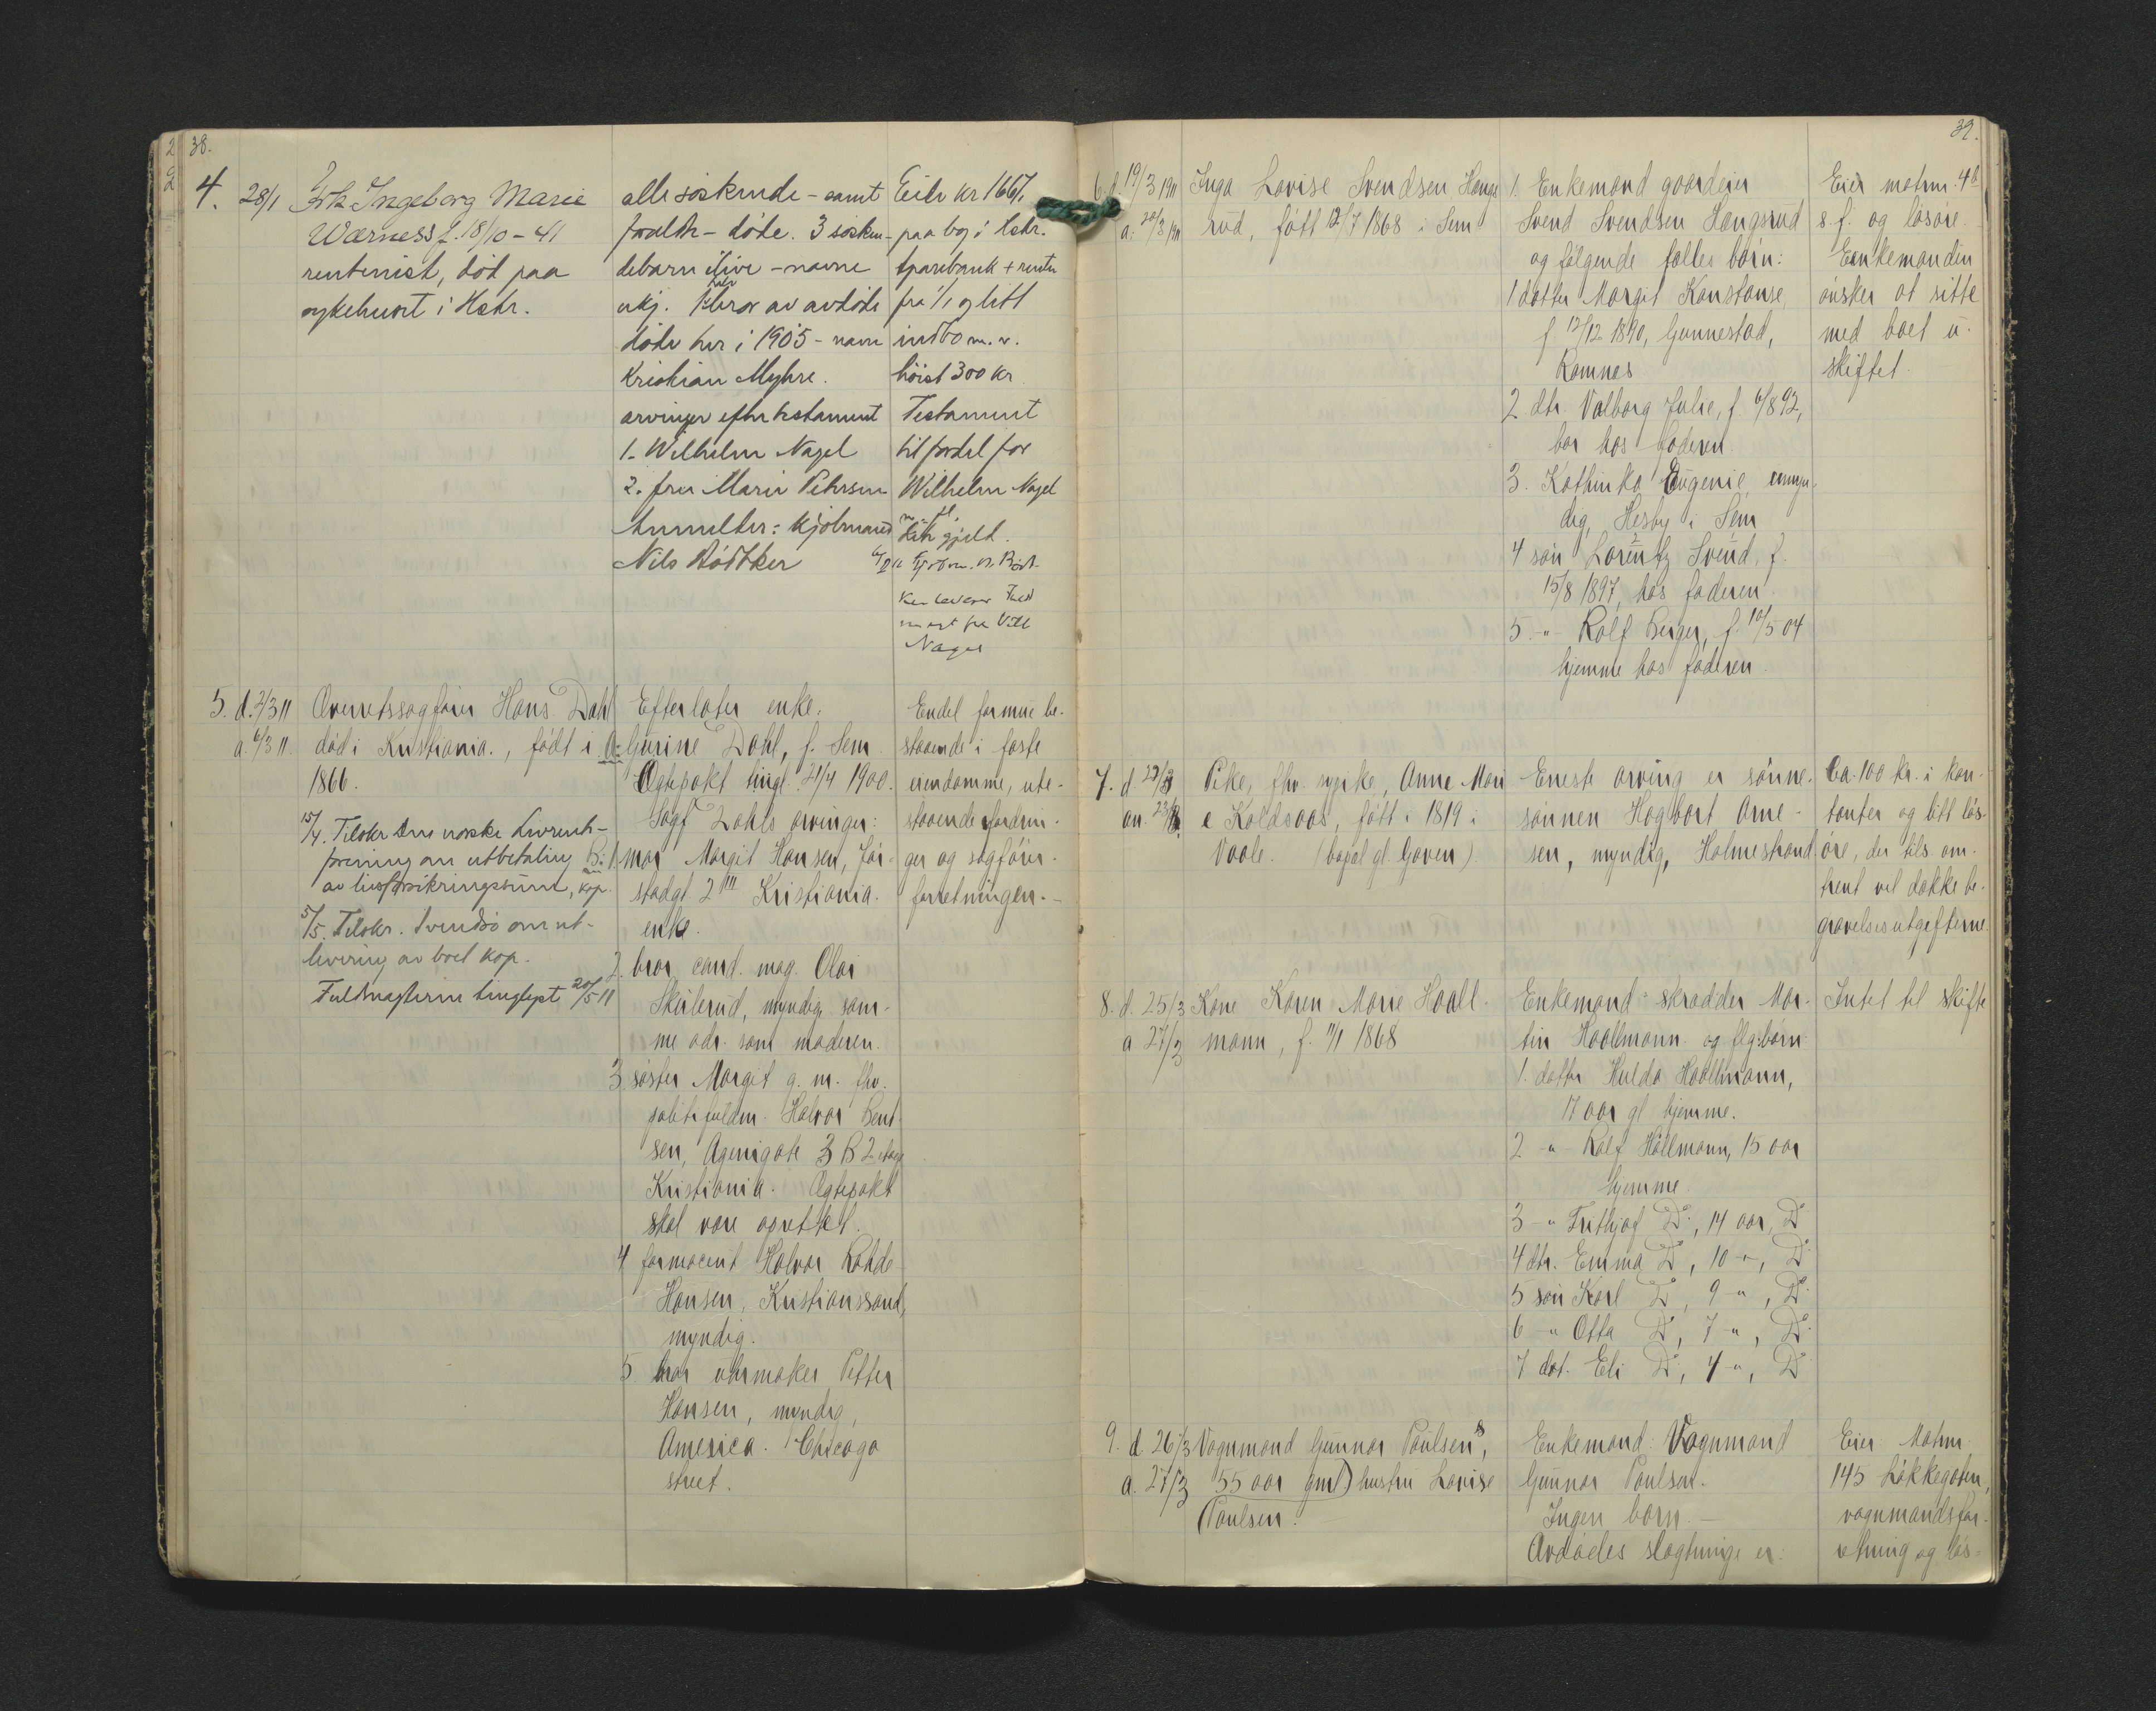 38.
4. 28/1
Frk Ingeborg Marie
Wærness f. 18/10 - 41
rentenist, död paa
sykehuset i Hstr.
alle söskende - samt
foreldr - döde. 3 sösken-
debarn ilive - navne
ukj. Halvbror av avdöde
döde her i 1905 - navn
Kristian Myhre.
arvinger efter testament
1. Wilhelm Nagel
2. fru Marie Petersen
Anmelter: kjöbmand
Nils Bödtker
Eier kr 1667,
paa bog i Hstr.
sparebank + renter
fra 1/1 og litt
indbo m. v.
höist 300 kr.
Testament
til fordel for
Wilhelm Nagel
m. fl.
Litt gjeld.
Nagel
5. d. 2/3 11
a. 6/3 11
Overretssagförer Hans Dahl
död i Kristiania., født i
1866.
15/4. Tilskr den norske Livrente-
forening om utbetaling
av livsforsikringssum, kop.
5/5. Tilskr. Svendsö om ut-
levering av boet kop.
Fuldmagterne tinglyst 20/5 11
Efterlater enke.
A: Gurine Dahl, f. Sem
Ægtepakt tingl. 21/4 1900.
Sagf Dahls arvinger:
B: 1. mor Margit Hansen,
stadgt. 2 III Kristiania.
enke.
2. bror cand. mag. Olai
Skülerud, myndig sam-
me adr. som moderen.
3 söster Margit g. m. fhv.
politifuldm. Halvor Bent
sen, Agersgate 3 B 2 etage
Kristiania. Ægtepakt
skal være oprettet.
4 farmaceut Halvor Rohde
Hansen, Kristianssand,
myndig.
5 bror uhrmaker Petter
Hansen, myndig,
America. Chicago
street.
Endel formue be-
staaende i faste
eiendomme, ute-
staaende fordrin-
ger og sagförer-
forretningen. -
39.
6. d. 19/3 1911
a. 20/3 1911
Inga Lovise Svendsen Hangs
rud, født 12/7 1868 i Sem
1. Enkemand gaardeier
Svend Svendsen Hangsrud
og følgende fælles børn:
1 datter Margit Konstanse,
f 12/12 1890, Gunnestad,
Ramnes
2 dtr. Valborg Julie, f. 6/8 92,
bor hos faderen
3. Kathinka Eugenie, umyn-
dig, Hesby i Sem
4 sön Lorentz Svend, f.
15/8 1897, hos faderen.
5 -"- Rolf Berger, f. 10/5 04
hjemme hos faderen.
Eier matrn. 4b
s. f. og lösöre.
Eenkemanden
önsker at sitte
med boet u-
skiftet.
7. d 22/3
an. 23/3
Pike, fhv. sypike, Anne Mari
e Koldsaas, født i 1819 i
Vaale.
Eneste arving er sönne-
sönnen Hagbart Arne-
sen, myndig, Holmestrand
Ca. 100 kr. i kon-
tanter og litt lös-
öre, der tils om-
trent vil dække be-
gravelsesutgifterne.
8. d. 25/3
a 27/3
Kone Karen Marie Haall-
mann, f. 11/1 1868
Enkemand skrædder Mar-
tin Haallmann og flg. börn:
1. datter Hulda Haallmann,
17 aar gl hjemme.
2 -"- Rolf Hållmann, 15 aar
hjemme.
3 -"- Frithjof Do., 14 aar, Do
4 dtr. Emma Do, 10 -"-, Do
5 sön Karl Do, 9 -"-, Do
6 -"- Otto Do, 7 -"-, Do
7 dat. Eli Do, 4 -"-, Do
Intet til skifte
9. d 26/3
a. 27/3
Vognmand Gunnar Paulsens,
(55 aar gml) hustru Lovise
Paulsen.
Enkemand: Vognmand
Gunnar Paulsen.
Ingen barn. -
Avdødes slægtninge er:
Eier Matrn
145 Løkkegaten,
vognmandsfor-
retning og løs-